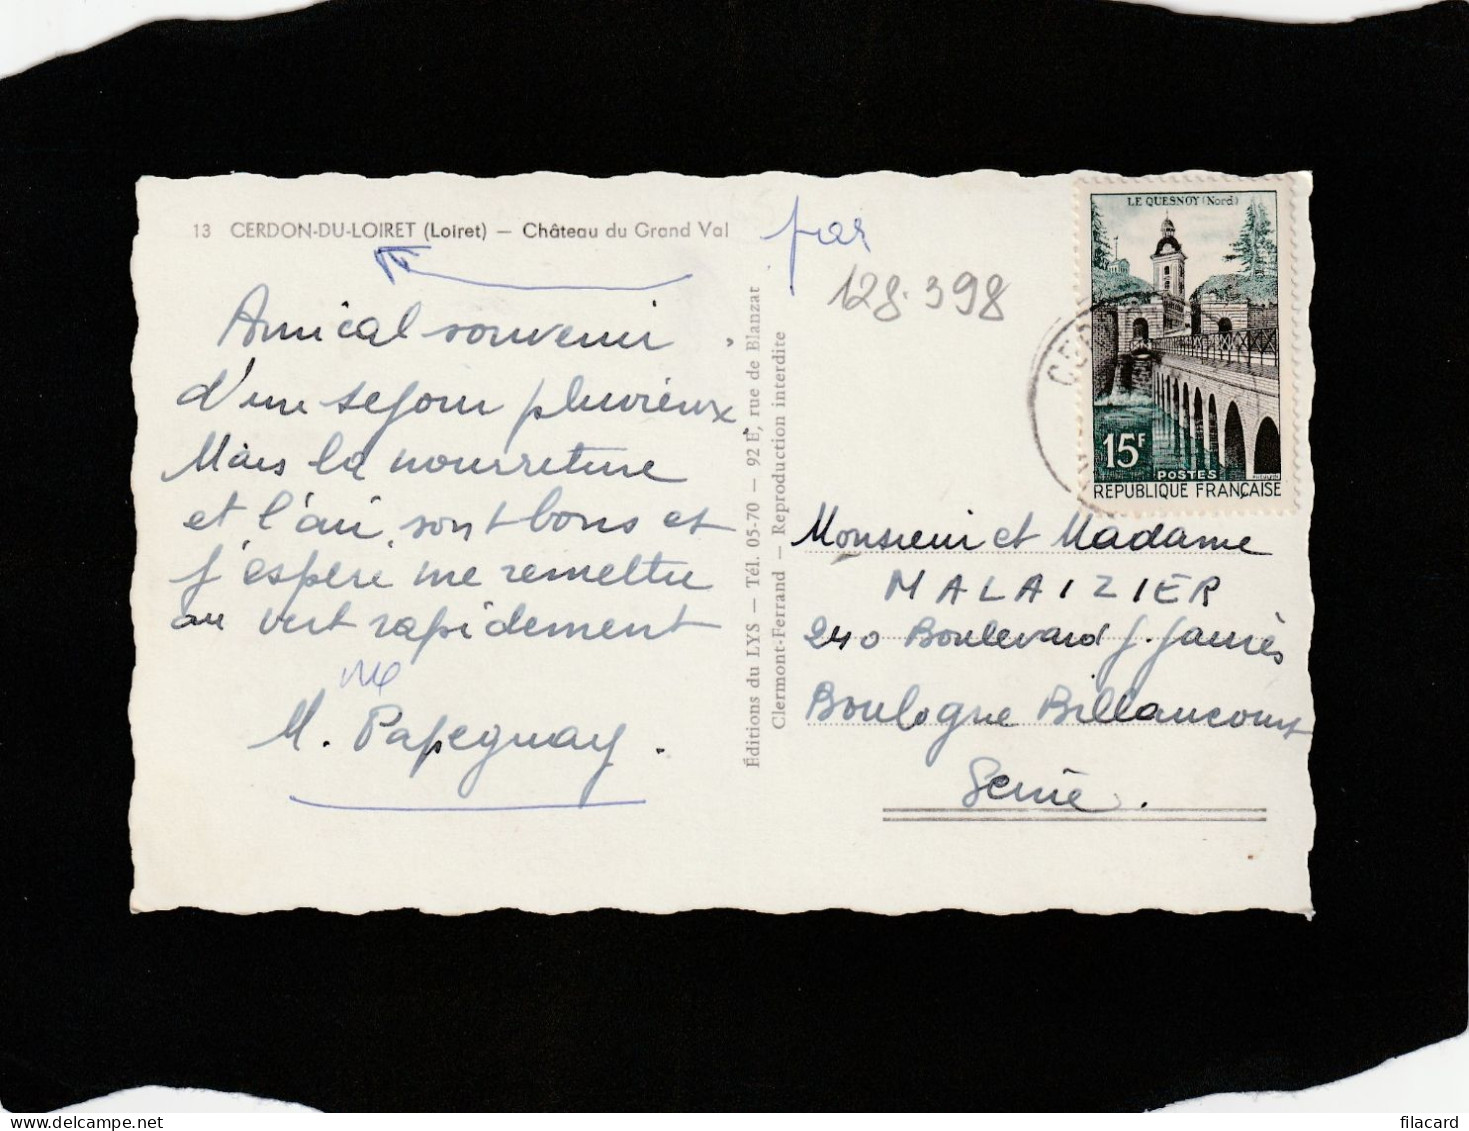 13 CERDON-DU-LOIRET (Loiret) — Château du Grand Val
Amical souvenir
d'un sejour pluvieux.
Mais la nourriture
et l'air sont bons et
j'espère me remettre
au vert rapidement
M. Papegnay.
Éditions du LYS — Tél. 05-70 — 92 E, rue de Blanzat
Clermont-Ferrand — Reproduction interdite
par
128.398
LE QUESNOY (Nord)
15F
POSTES
REPUBLIQUE FRANÇAISE
Monsieur et Madame
MALAIZIER
240 Boulevard J. Jaurès
Boulogne Billancourt
Seine.
filacard